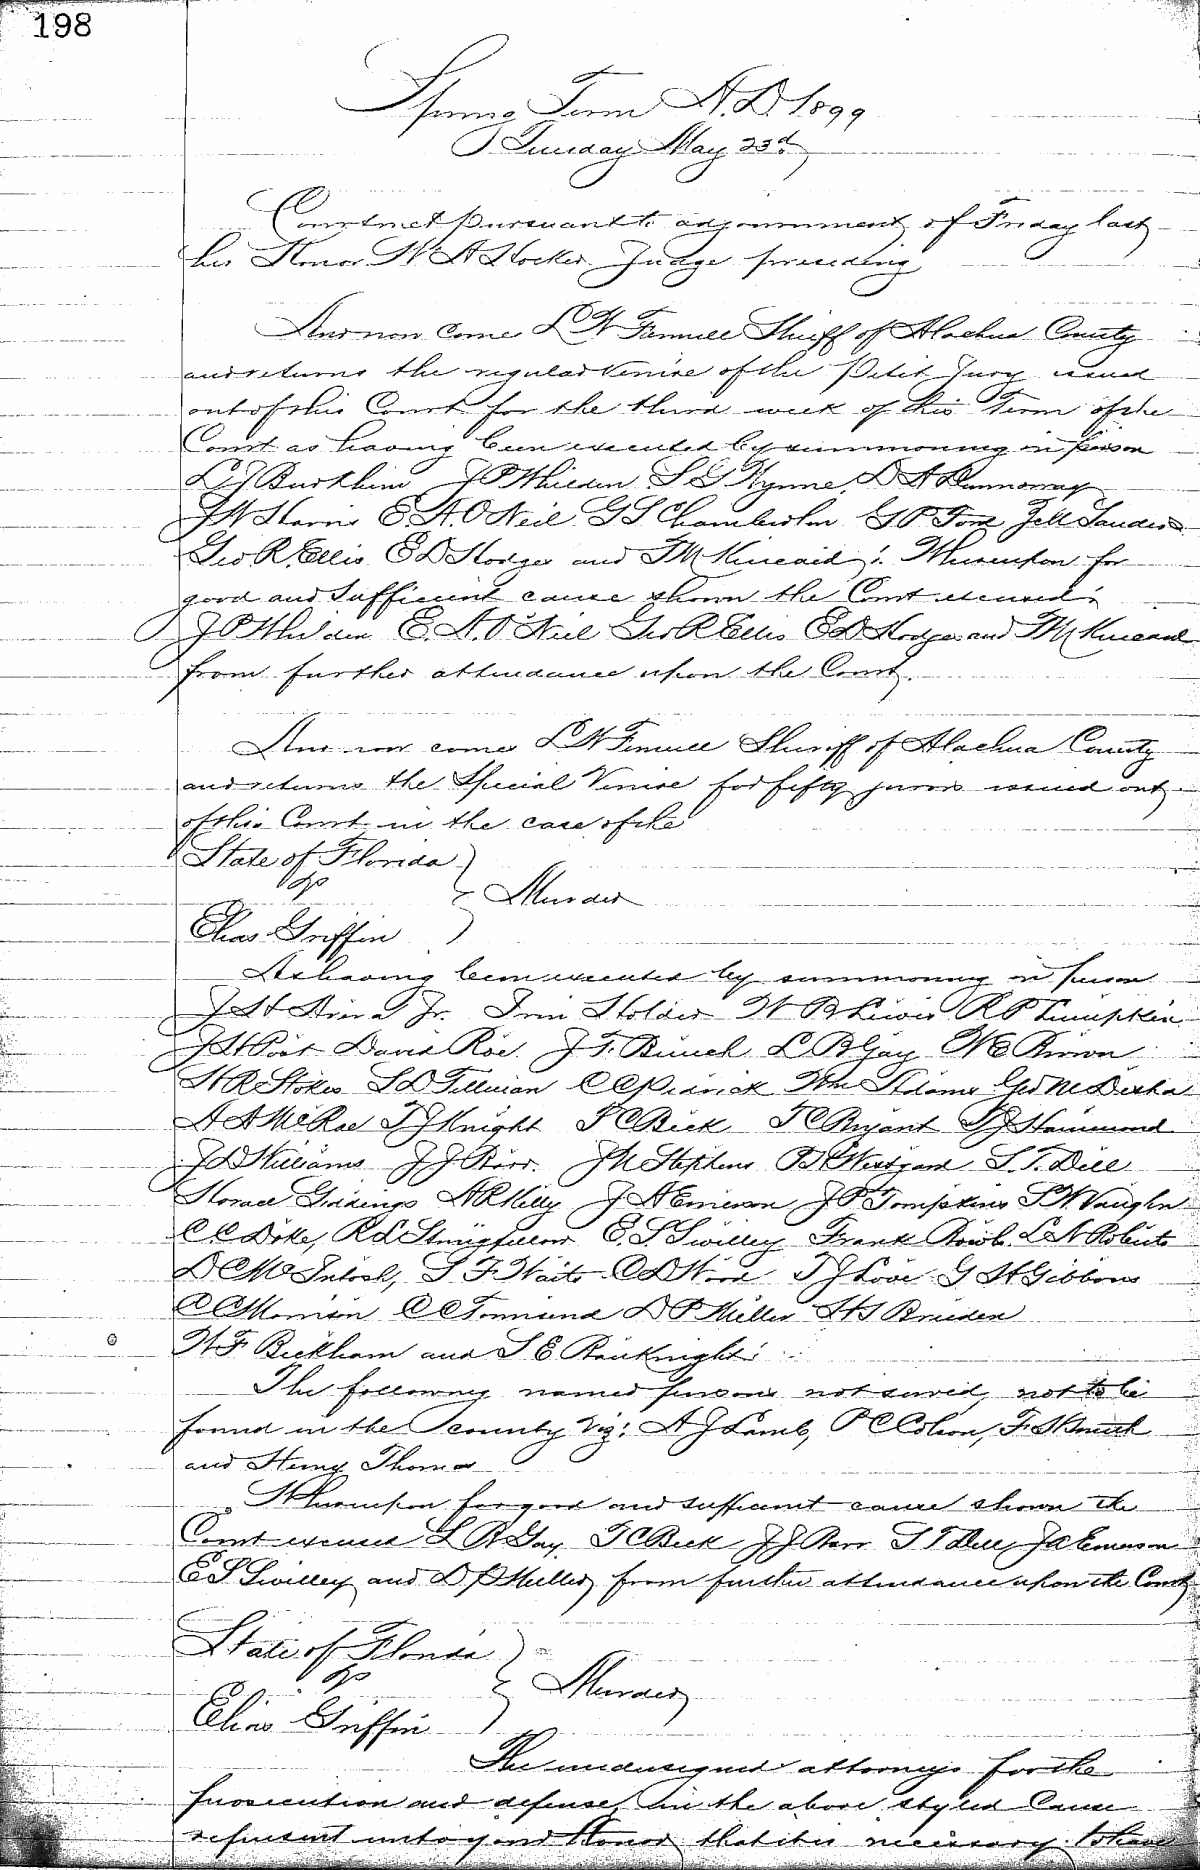 198
Spring Term A.D. 1899
Tuesday May 23d
Court met pursuant to adjournment of Friday last
his Honor W A Hocker Judge presiding
And now come L W Fennell Sheriff of Alachua County
and returns the regular Venire of the Petit Jury issued
out of this Court for the third week of this Term of the
Court as having been executed by summoning in person
L J Burkhim J P Whilden S G Wynne, D A
J W Harris E. A. O Neil G S Chamberlin G P Ford Zell Sanders
Geo R. Ellis E D Hodges and T M Kincaid: Whereupon for
good and sufficient cause shown the Court excused:
J P Whilden E. A. O Neil Geo R Ellis E D Hodges and T M Kincaid
from further attendance upon the Court.
And now comes L W Fennell Sheriff of Alachua County
and returns the Special Venire for fifty jurors issued out
of this Court in the case of the
State of Florida
vs
Murder
Elias Griffin
As having been executed by summoning in person
J H Jr. Holder W B Lewis R P Lumpkin
J H Post David Roe. J F. Bunch L B Gay W E Brown
H R Stokes S D Tillman C C Pedrick Wm Adams Geo
A A McRae T J Knight T C Beck T C Bryant T J Hammond
J D Williams J J Barr. J M Stephens B Westgard S. T. Dell
Horace Giddings A R Kelly J A Emerson J P Tompkins S W Vaughn
C C Doke, R L Stringfellow E. S Swilley Frank L N Roberts
D C McIntosh, S F Waits C D Wood T J Love G H Gibbons
C C Townsend D P Miller
W F Bickham and S E Bauknight:
The following named persons not served, not to be
found in the county viz: A J Lamb, P C Colson, F
and Henry Thomas
Whereupon for good and sufficient cause shown the
Court excused L B Gay, T C Beck J J Barr S T Dell, J A Emerson
E S Swilley and D P Miller from further attendance upon the Court
State of Florida
vs
Murder
Elias Griffin
The undersigned attorneys for the
prosecution and defense in the above styled Cause
represent unto your Honor that it is necessary to have